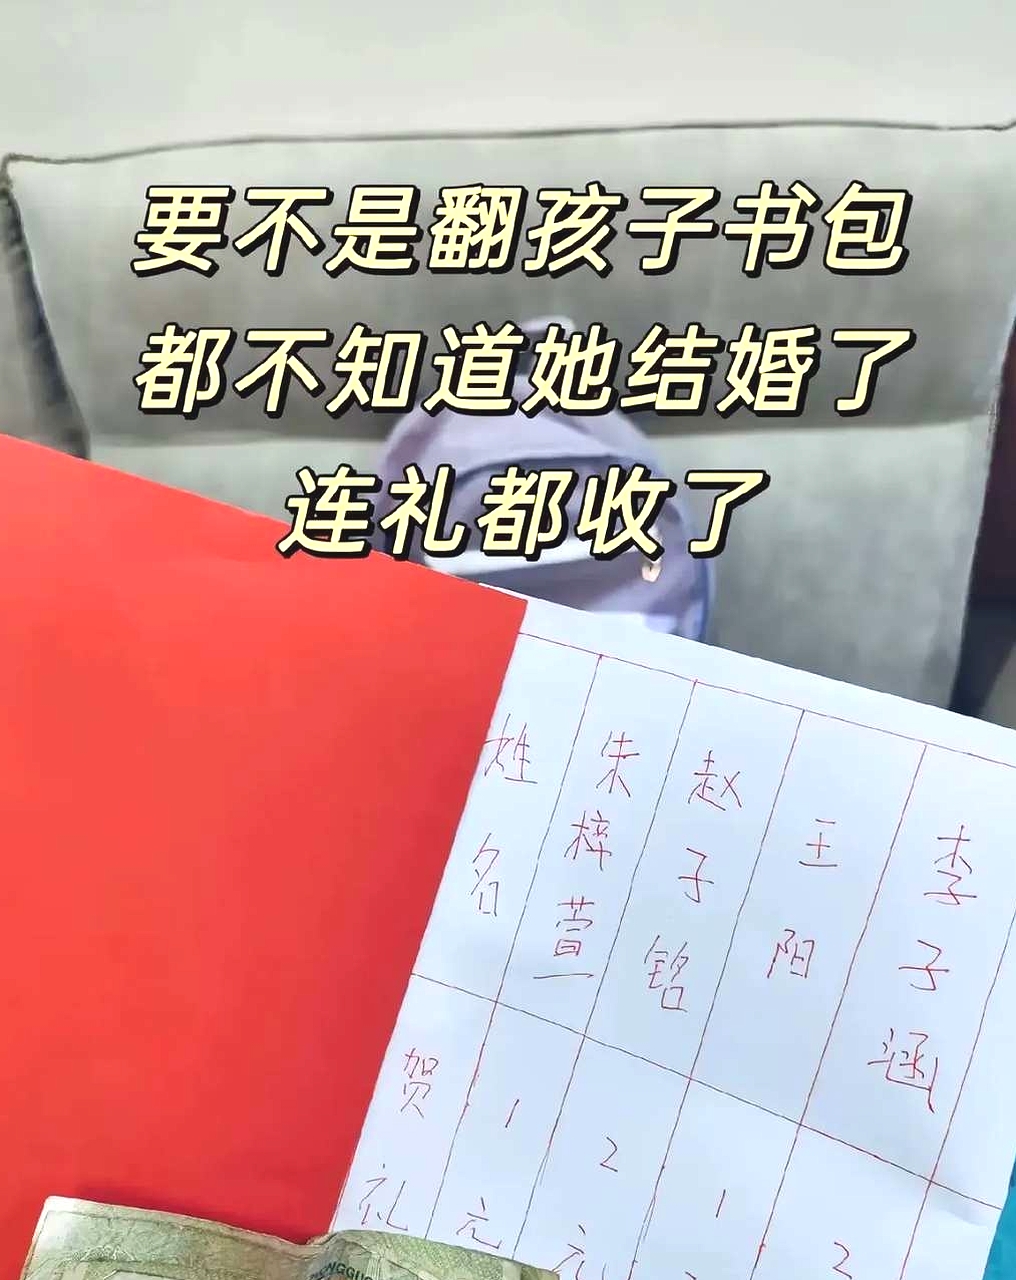 要不是翻孩子书包
都不知道她结婚了
连礼都收了
姓名
朱梓萱
赵子铭
王阳
李子涵
贺礼
1元
2元
1
2